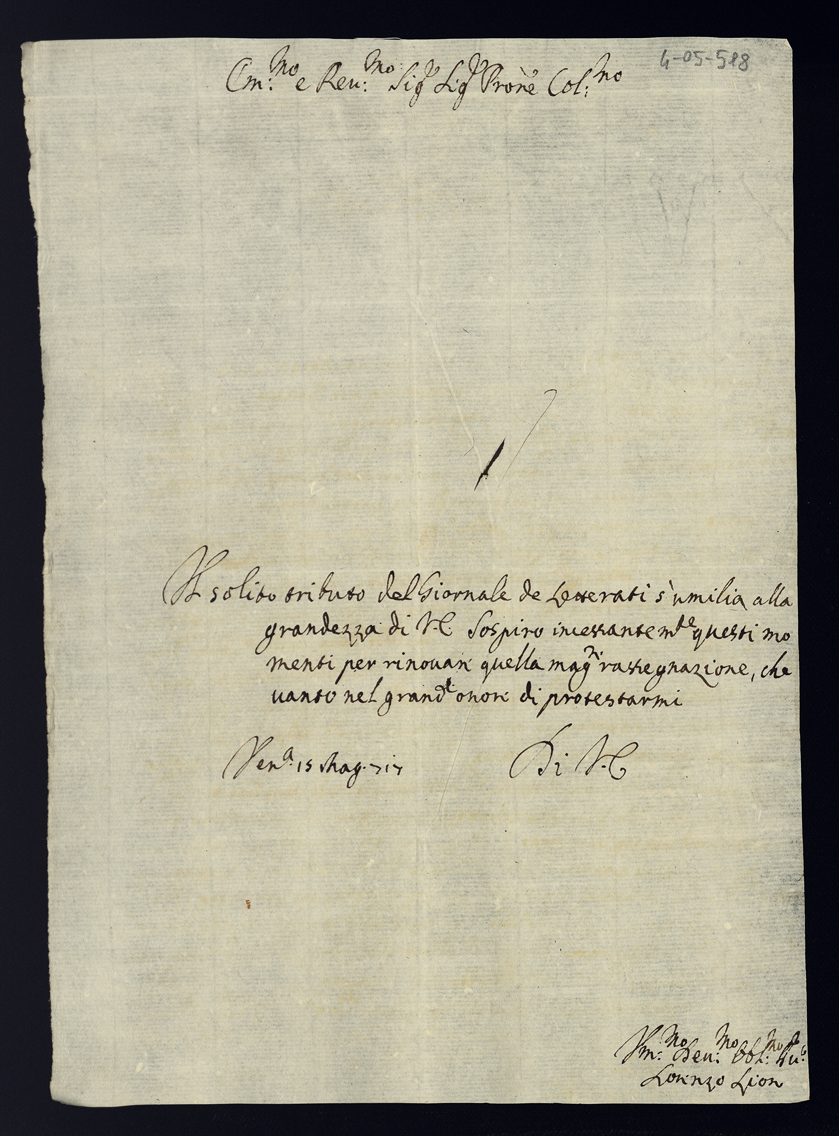 4-05-518
Em:mo e Reu:mo Sigr Sigr Prone Col:mo
Il solito tributo del Giornale de Letterati s'umilia alla
grandezza di V.E. Sospiro incessantemte questi mo
menti per rinouar quella magr rassegnazione, che
uanto nel grande onor di protestarmi
Vena. 15 Mag. 717
Di V.E.
Vm:mo Deu:mo Obl:mo Sure
Lorenzo Lion